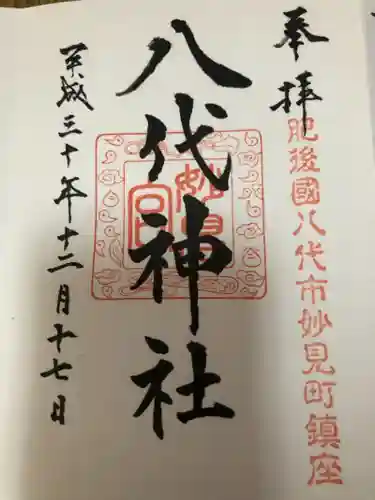 奉拝
肥後國八代市妙見町鎮座
八代神社
妙見宮
平成三十年十二月十七日